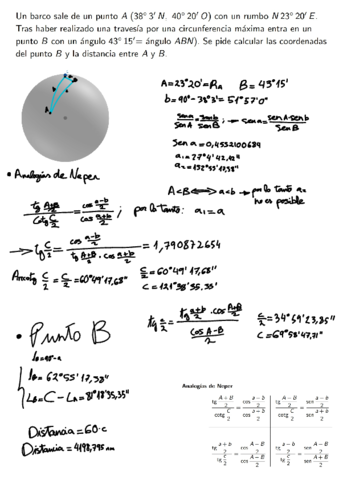 Un barco sale de un punto A (38° 3′ N, 40° 20′ O) con un rumbo N 23° 20′ E.
Tras haber realizado una travesía por una circunferencia máxima entra en un
punto B con un ángulo 43° 15′= ángulo ABN). Se pide calcular las coordenadas
del punto B y la distancia entre A y B.
A=23°20'=RA B=43°15'
b=90°-38°3'=51°57'0"
sen a/sen A = sen b/sen B ; → sen a = sen A·sen b/sen B
Sen a=0,4552100684
a₁=27°4'42,42"
a₂=152°55'17,58"
A<B ⟺ a<b → por lo tanto a₂
no es posible
• Analogías de Neper
tg A+B/2 / cotg C/2 = cos a-b/2 / cos a+b/2 ; por lo tanto: a₁=a
→ tg C/2 = cos a-b/2 / tg A+B/2 · cos a+b/2 = 1,790872654
Arcotg C/2 = C/2 = 60°49'17,68" C/2=60°49'17,68"
C=121°38'35,35"
tg c/2 = tg a+b/2 · cos A+B/2 / cos A-B/2 c/2=34°59'23,85"
c=69°58'47,71"
• Punto B
lB=90-a
lB=62°55'17,58"
LB=C-LA=81°18'35,35"
Distancia=60·c
Distancia=4198,795 nm
Analogías de Neper
tg A+B/2 / cotg C/2 = cos a-b/2 / cos a+b/2 tg A-B/2 / cotg C/2 = sen a-b/2 / sen a+b/2
tg a+b/2 / tg c/2 = cos A-B/2 / cos A+B/2 tg a-b/2 / tg c/2 = sen A-B/2 / sen A+B/2